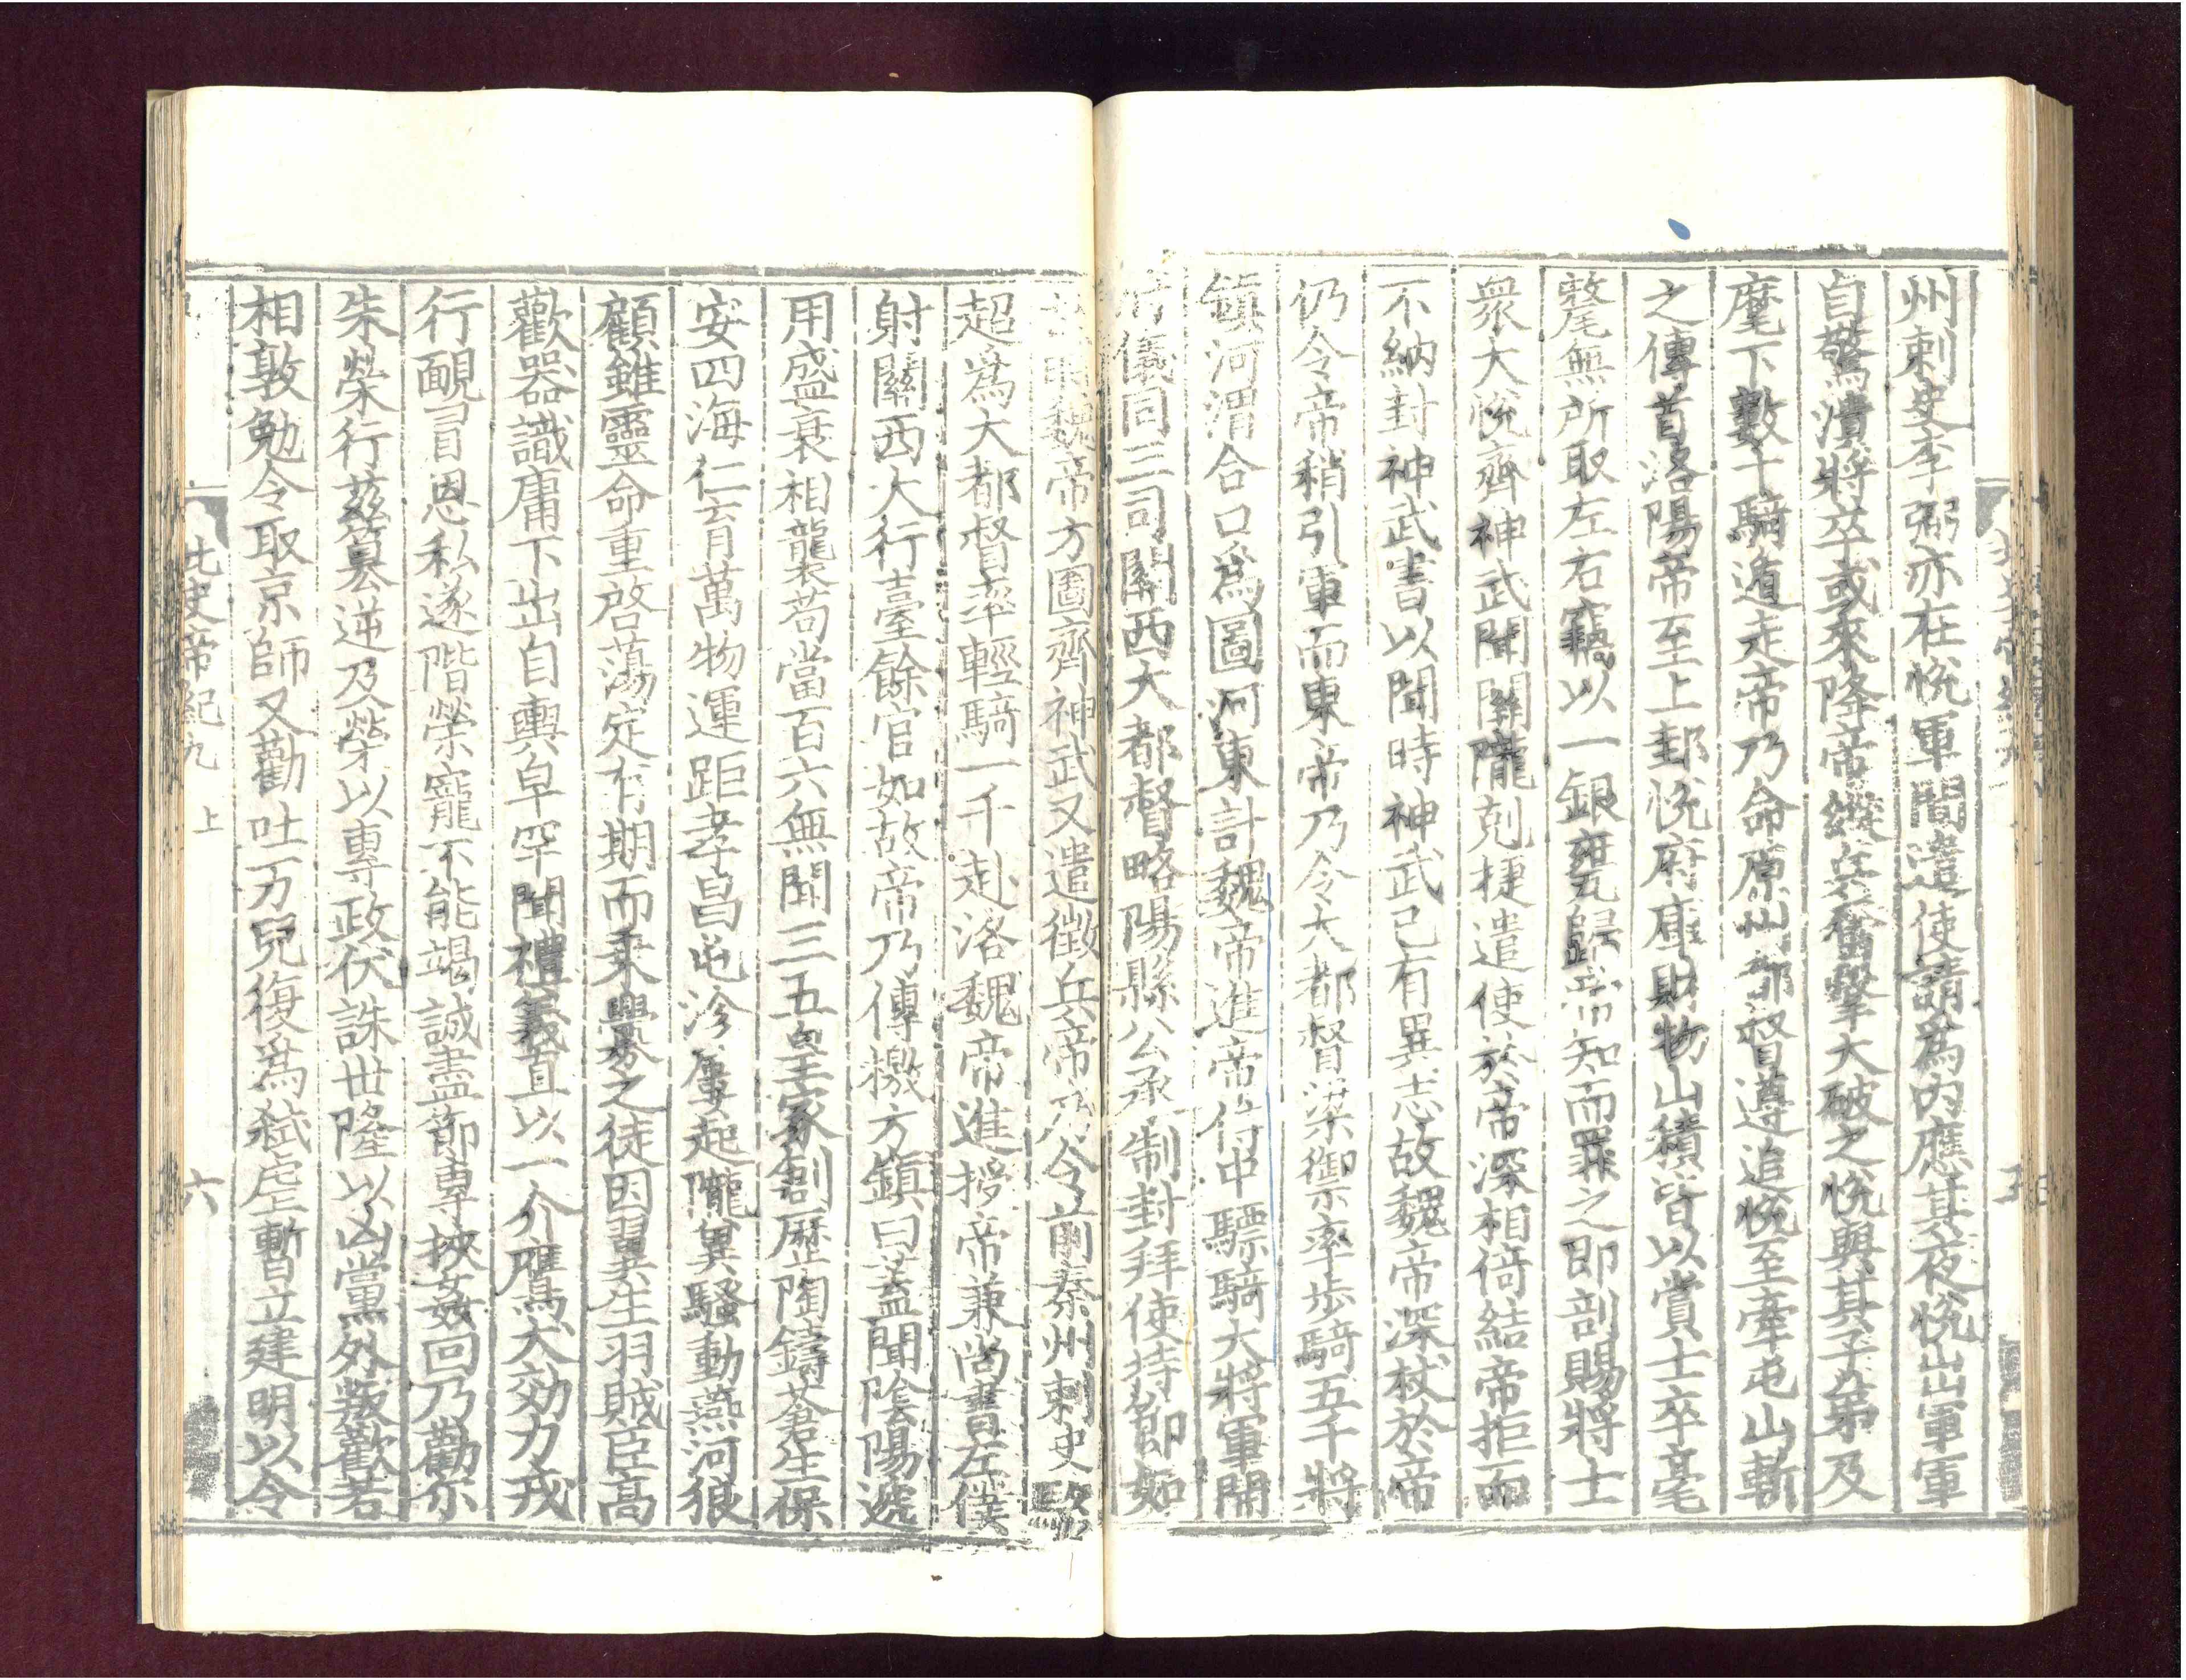 州刺史李弼亦在悅軍間遣使請爲內應其夜悅出軍軍
自驚潰將卒或來降帝縱兵奮擊大破之悅與其子弟及
麾下數十騎遁走帝乃命原州都督導追悅至牽屯山斬
之傳首洛陽帝至上邽悅府庫財物山積皆以賞士卒毫
氂無所取左右竊以一銀甕歸帝知而罪之即剖賜將士
衆大悅齊神武聞關隴剋捷遣使於帝深相倚結帝拒而
不納封神武書以聞時神武已有異志故魏帝深杖於帝
仍令帝稍引軍而東帝乃令大都督梁禦率步騎五千將
鎮河渭合口爲圖河東計魏帝進帝侍中驃騎大將軍開
府儀同三司關西大都督略陽縣公承制封拜使持節如
魏帝方圖齊神武又遣徵兵帝乃令前秦州刺史駱
超爲大都督率輕騎一千赴洛魏帝進授帝兼尚書左僕
射關西大行臺餘官如故帝乃傳檄方鎮曰蓋聞陰陽遞
用盛衰相襲苟當百六無聞三五皇家創歷陶鑄蒼生保
安四海仁育萬物運距孝昌屯沴屢起隴冀騷動燕河狼
顧雖靈命重啓蕩定有期而乘舋之徒因翼生羽賊臣高
歡器識庸下出自輿皁罕聞禮義直以一介鷹犬効力戎
行靦冒恩私遂階榮寵不能竭誠盡節專挾姦回乃勸尒
朱榮行茲簒逆及榮以專政伏誅世隆以凶黨外叛歡若
相敦勉令取京師又勸吐万兒復爲弑虐暫立建明以令
北史帝紀九 上 六